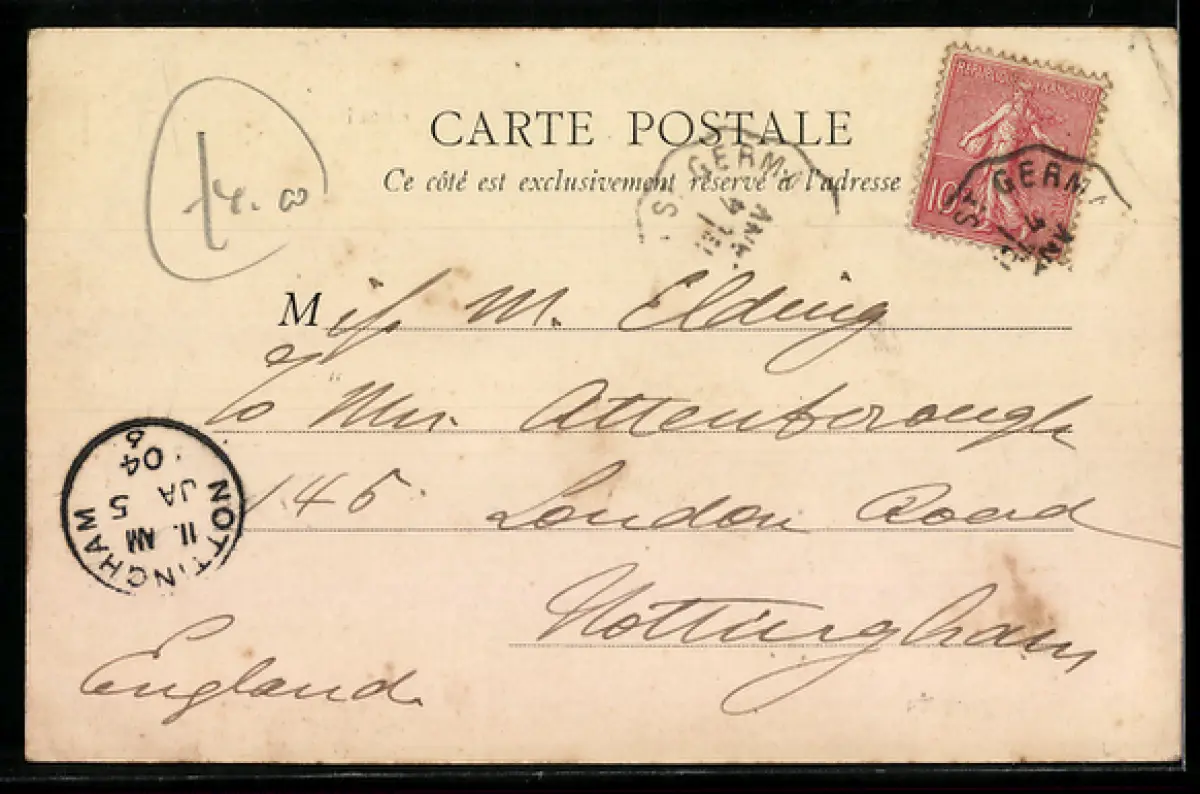 CARTE POSTALE
Ce côté est exclusivement réservé à l'adresse
REPUBLIQUE FRANÇAISE
10
GERM
GERM
Miss M. Elding
c/o Mrs. Attenborough
145. London Road
Nottingham
England
NOTTINGHAM
11. AM
JA 5
04